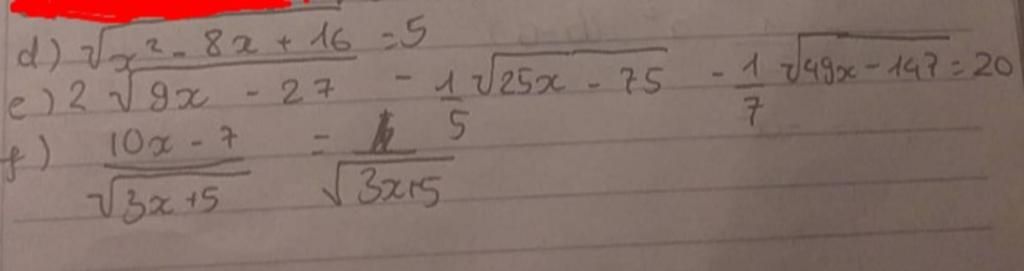 d) √(x² - 8x + 16) = 5
e) 2 √(9x - 27) - 1/5 √(25x - 75) - 1/7 √(49x - 147) = 20
f) (10x - 7)/√(3x+5) = /√(3x+5)